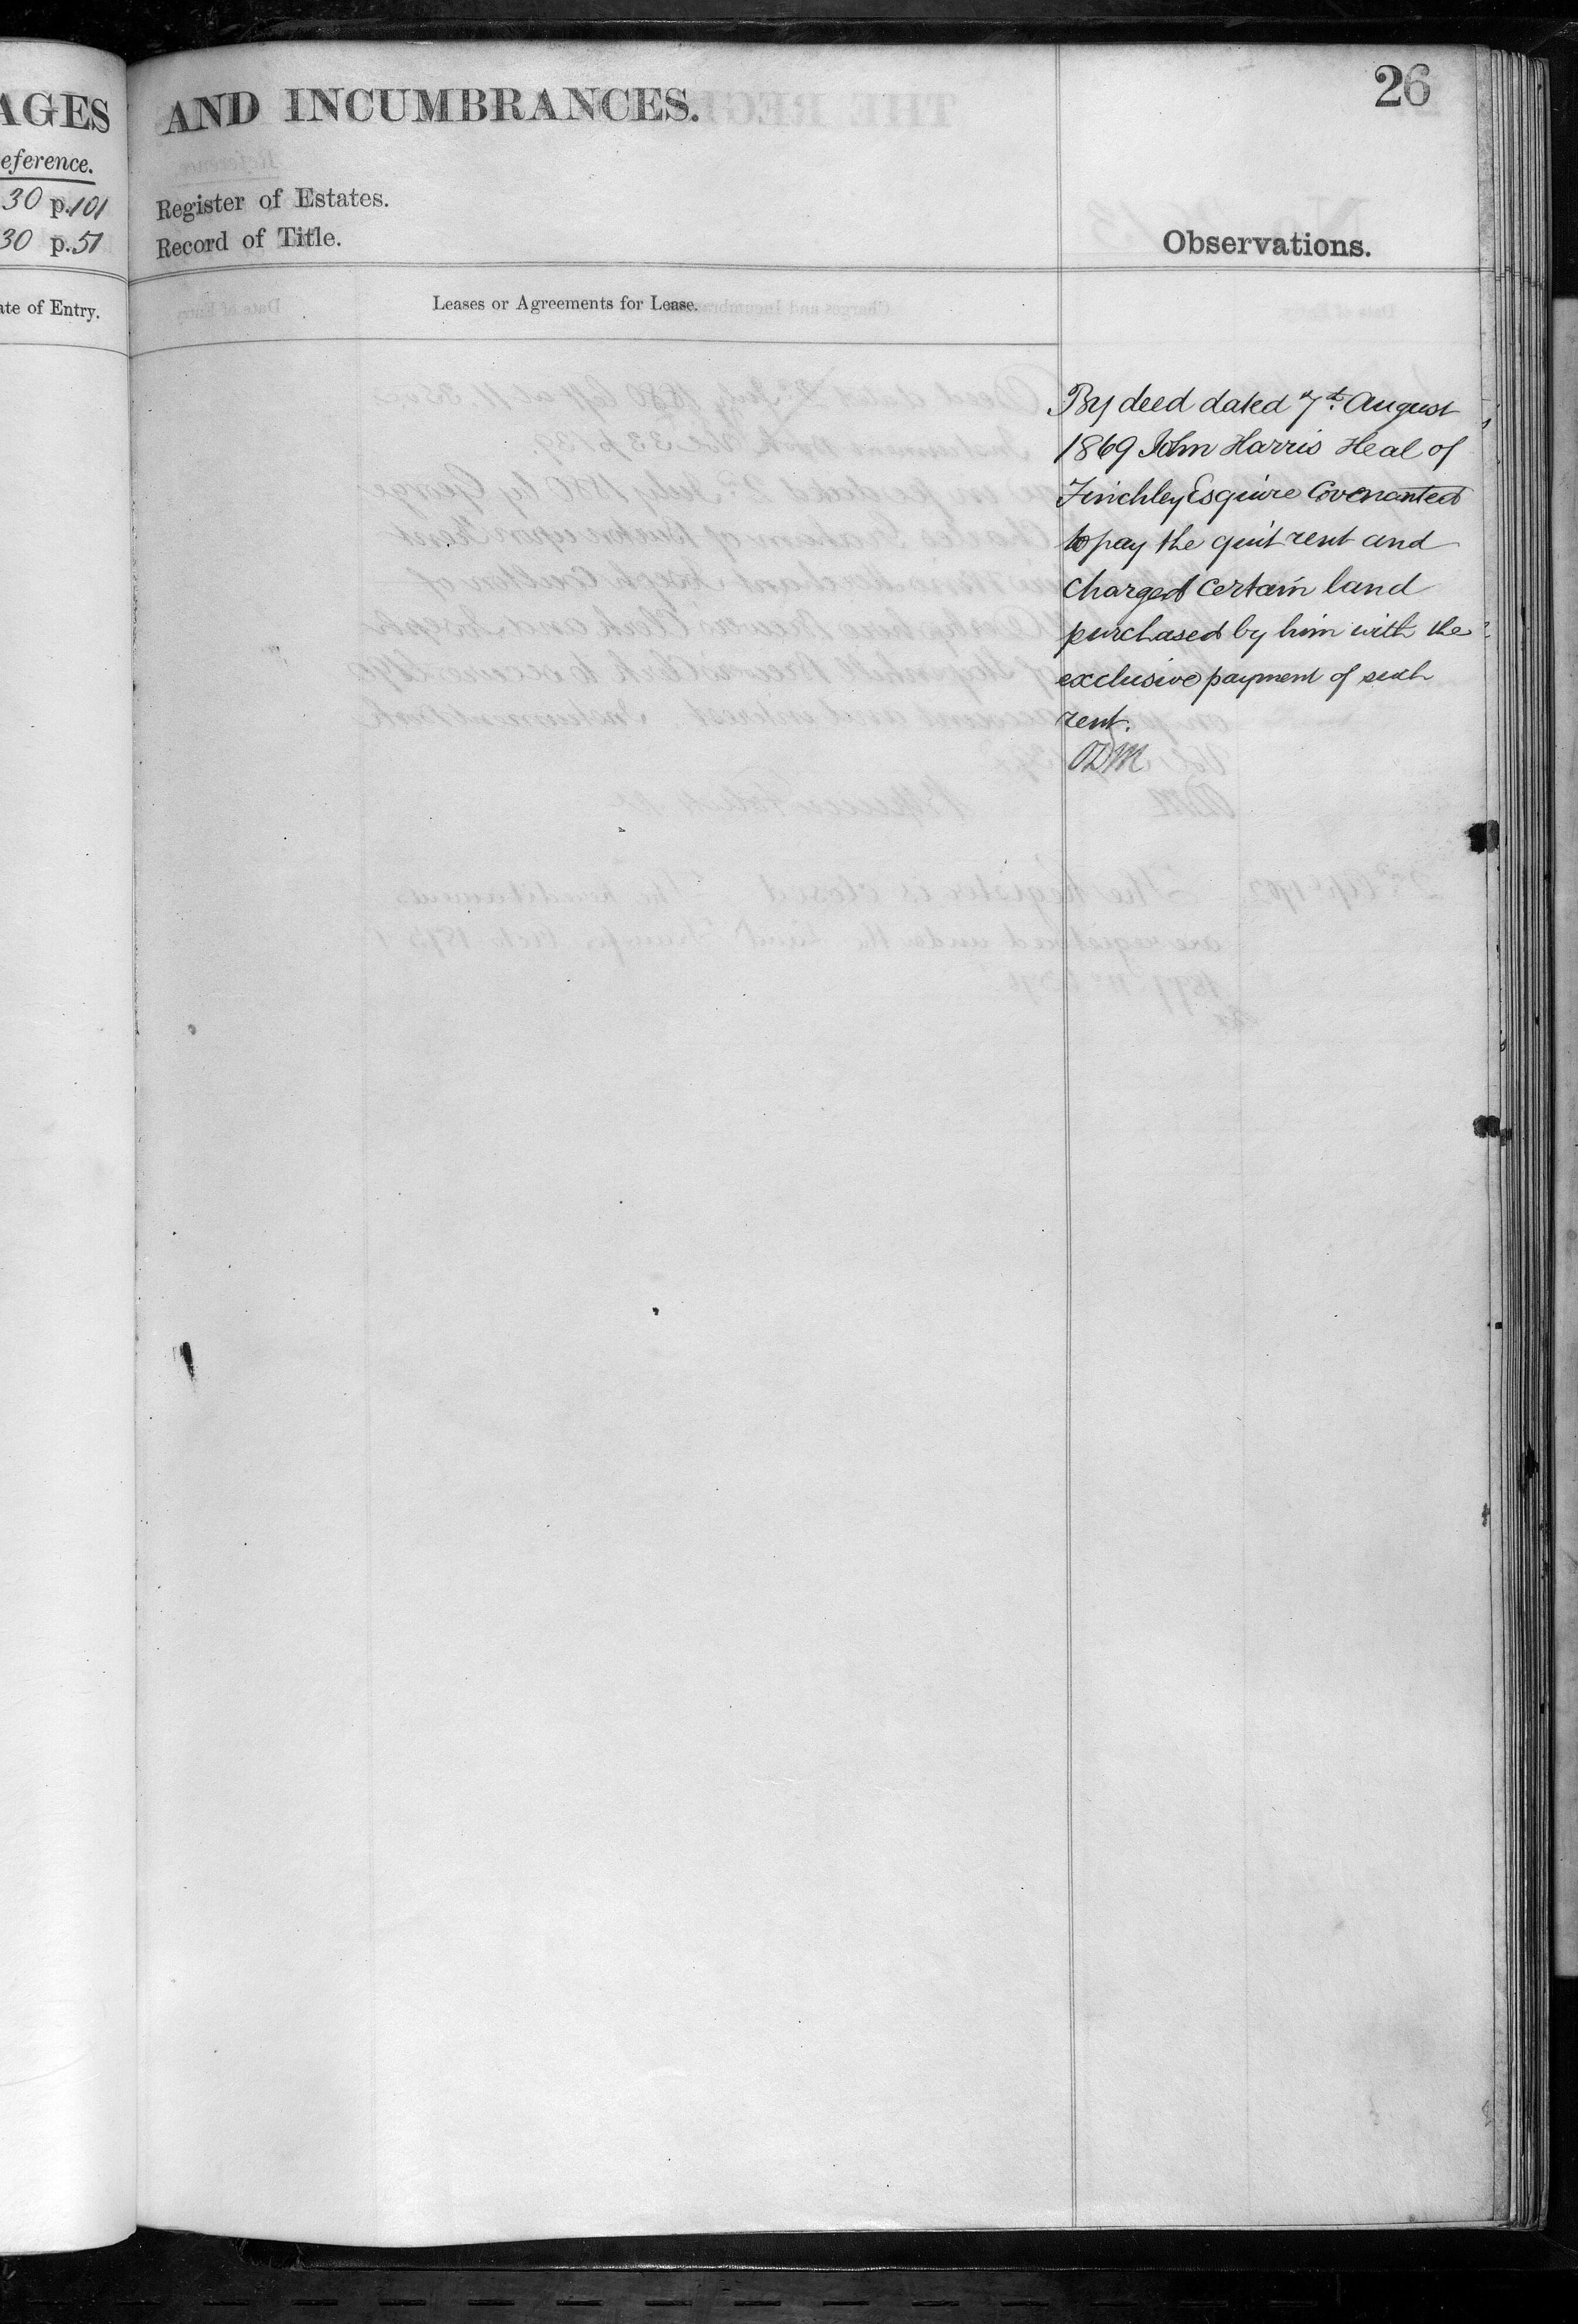 AGES
eference.
30 p.101
30 p.51
ate of Entry.
AND INCUMBRANCES.
26
Register of Estates.
Record of Title.
Observations.
Leases or Agreements for Lease.
By deed dated 7th. August
1869 John Harris Heal of
Finchley Esquire Covenanted
to pay the quit rent and
Charged Certain land
purchased by him with the
exclusive payment of such
rent.